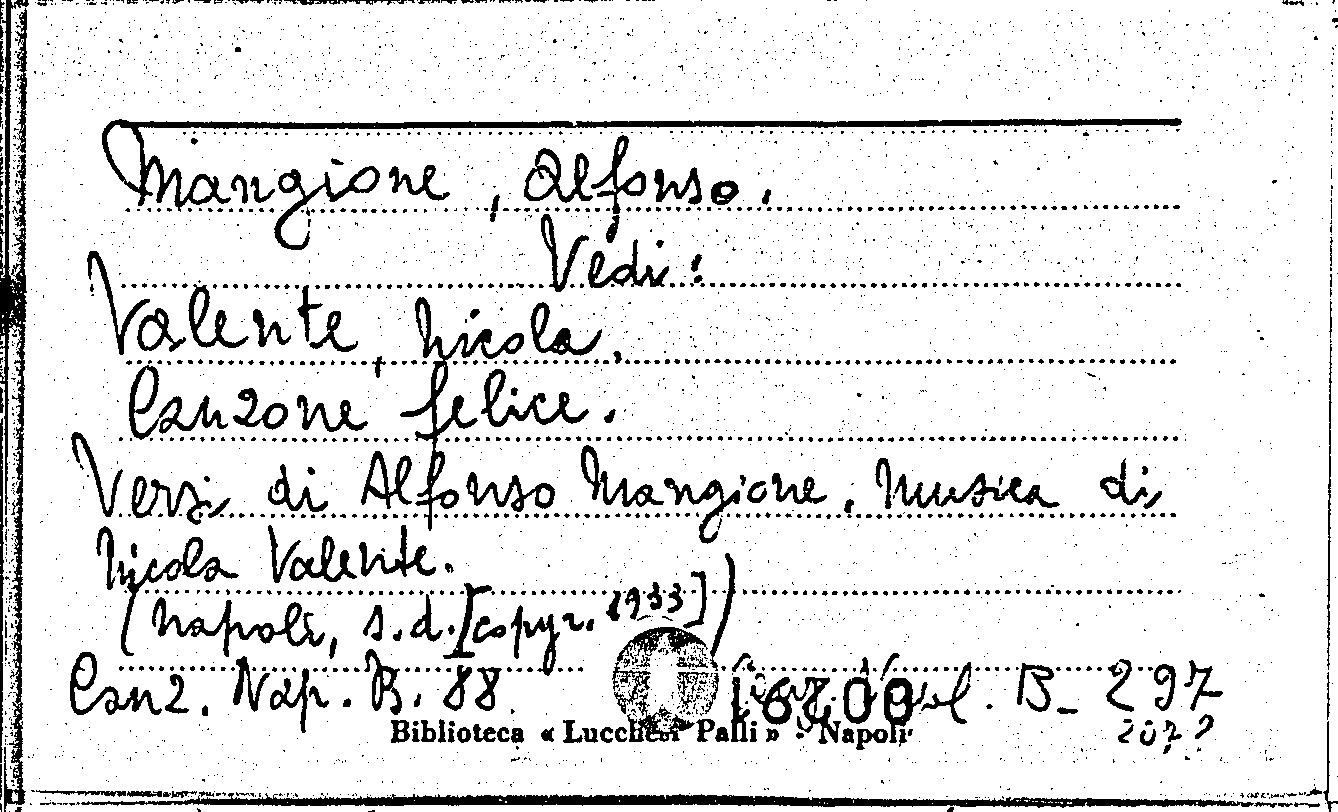 Mangione, Alfonso.
Vedi:
Valente, Nicola.
Canzone felice.
Versi di Alfonso Mangione. Musica di
Nicola Valente.
(Napoli, s.d. [copyr. 1933])
Canz. Nap. B. 88 16800 B- 297
Biblioteca « Lucchesi Palli » - Napoli